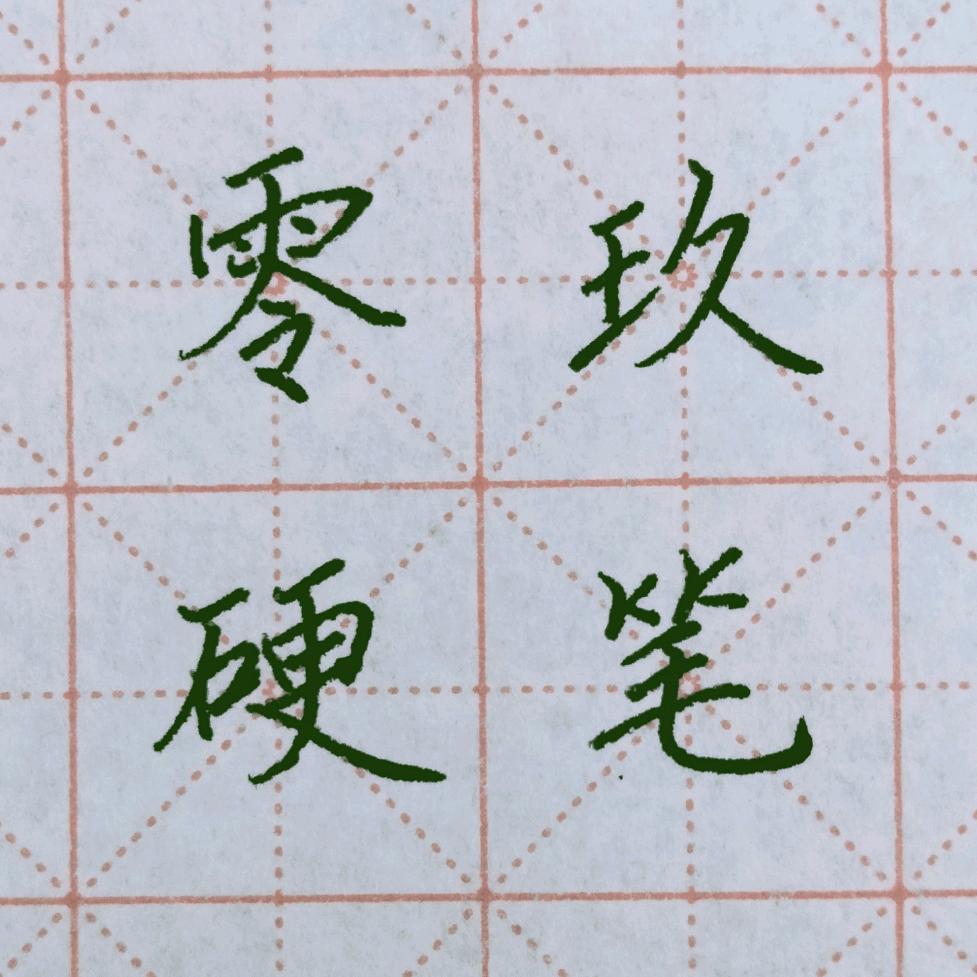 零玖
硬笔